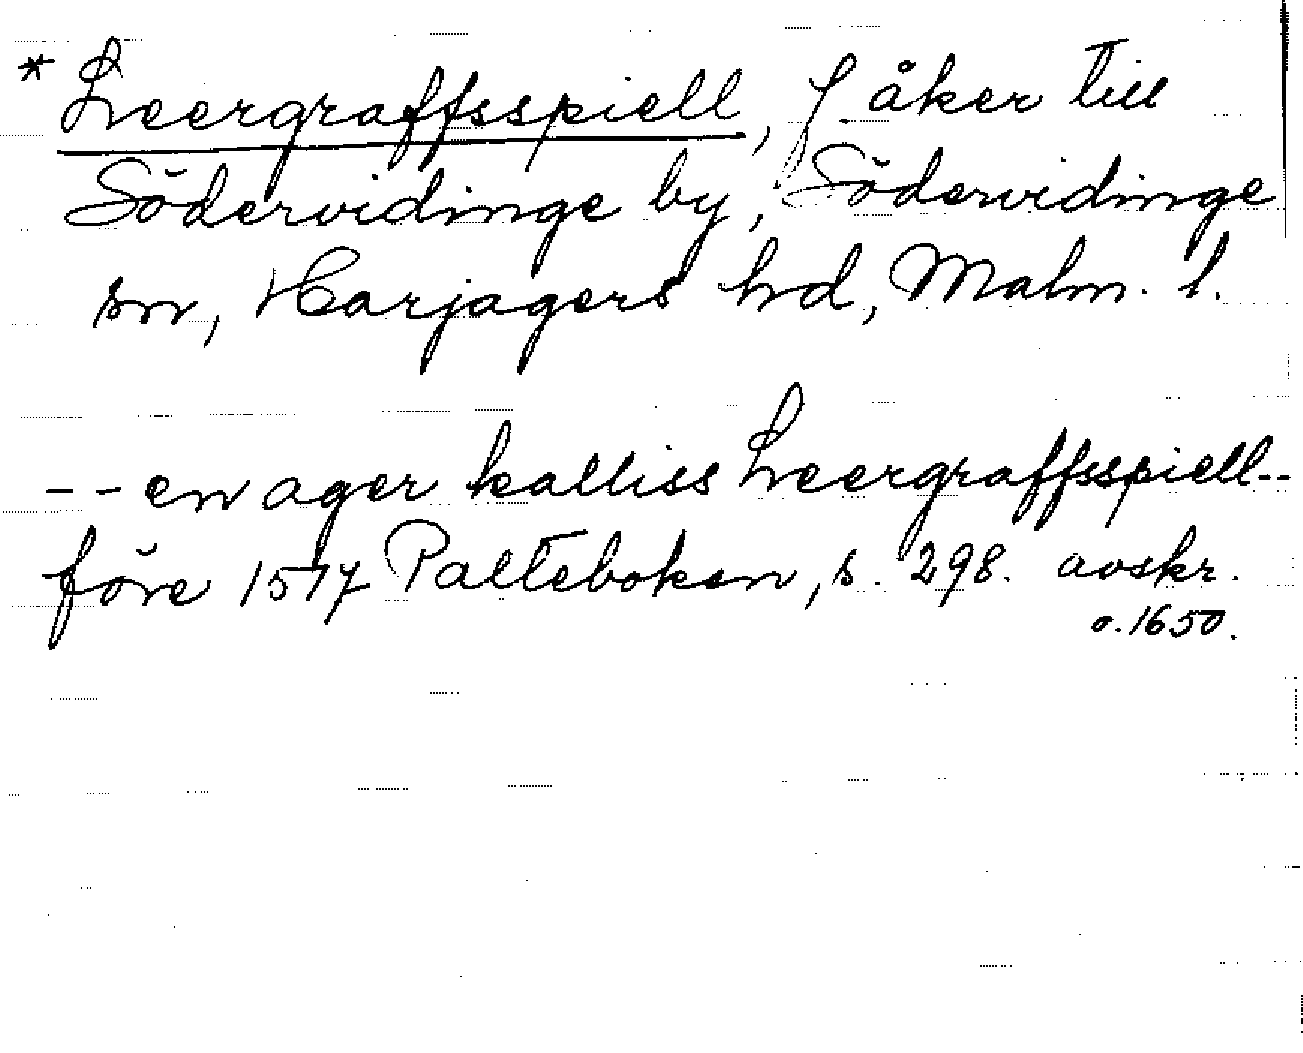 * Leergraffsspiell, f åker till
Södervidinge by, Södervidinge
sn, Harjagers hd, Malm. l.
-- en ager kalliss Leergraffsspiell--
före 1577 Palteboken, s. 298. avskr.
o. 1650.